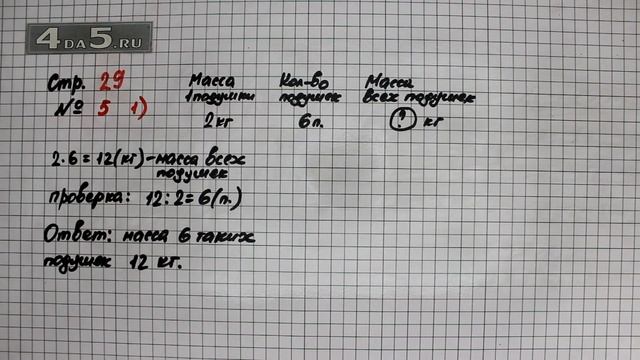 4DA5.RU
Стр. 29
№ 5 1)
Масса Кол-во Масса
1 подушки подушек всех подушек
2 кг 6 п. ? кг
2·6=12(кг)-масса всех
подушек
проверка: 12:2=6(п.)
Ответ: масса 6 таких
подушек 12 кг.